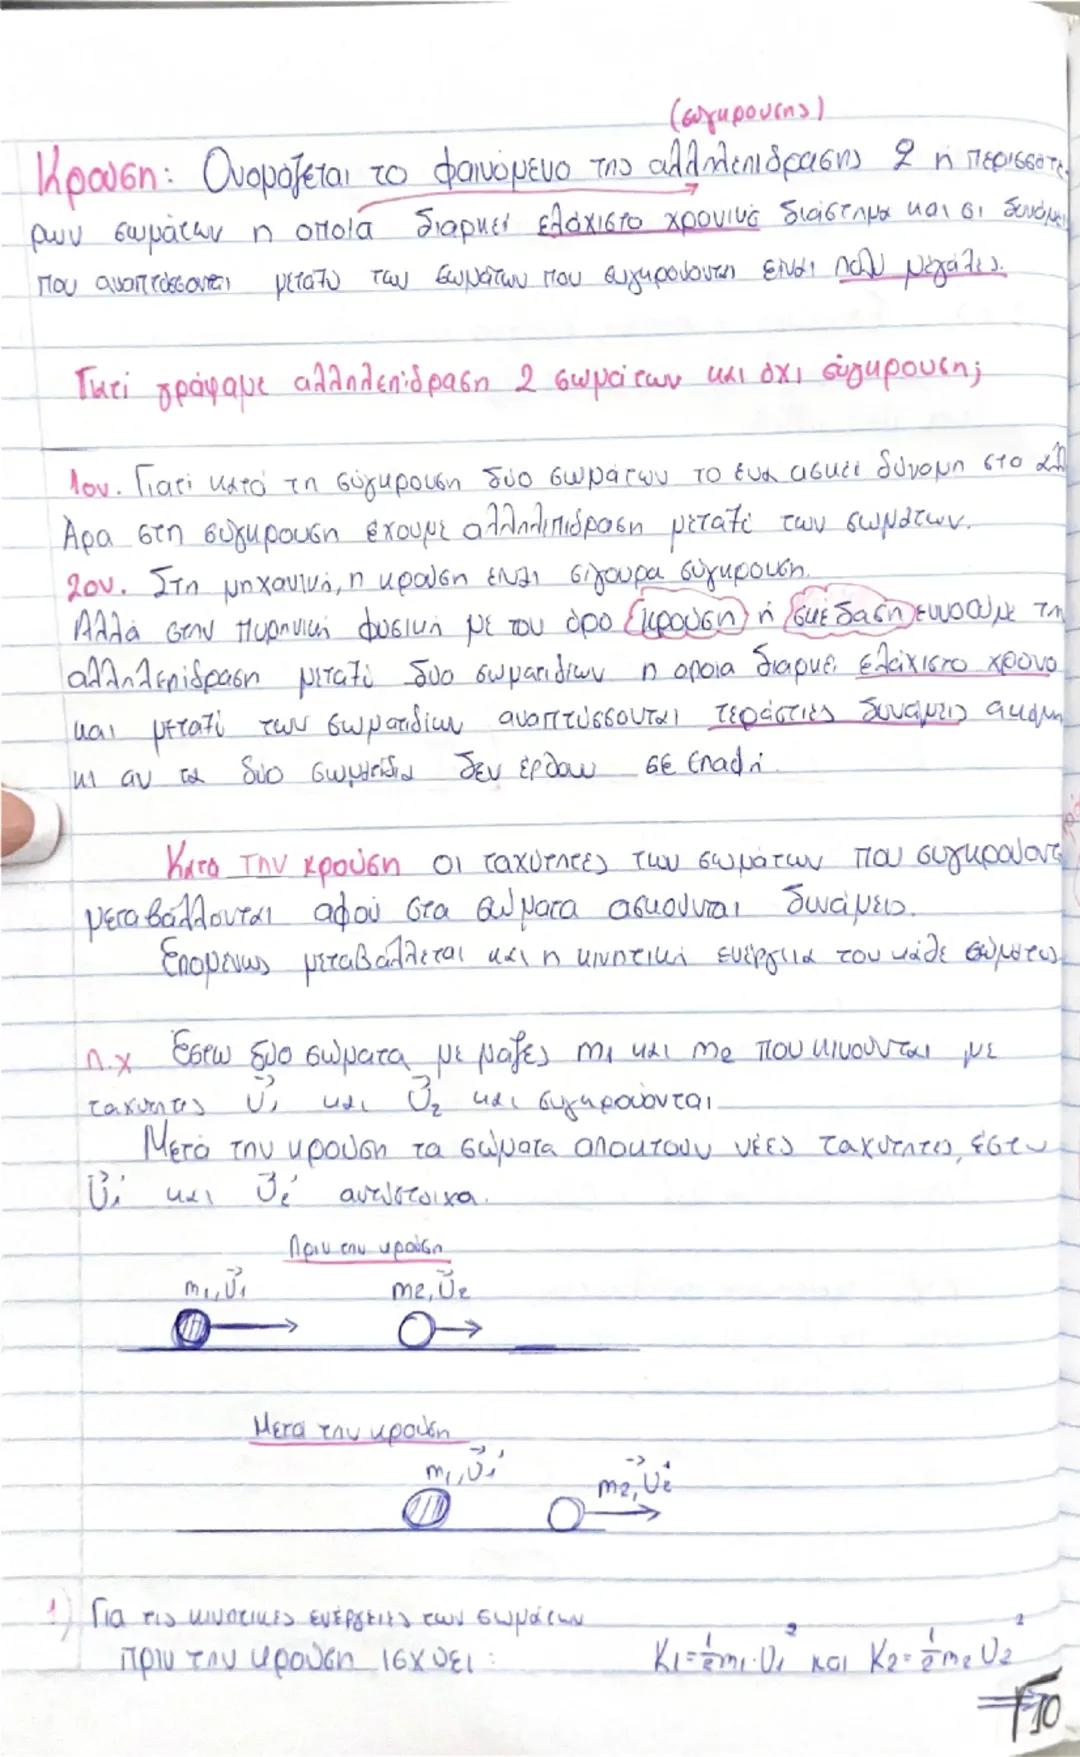 (σύγκρουσης)
Κρούση: Ονομάζεται το φαινόμενο της αλληλεπίδρασης 2 ή περισσοτέ
ρων σωμάτων η οποία διαρκεί ελάχιστο χρονικό διάστημα και οι δυνάμει
που αναπτύσσονται μεταξύ των σωμάτων που συγκρούονται είναι πολύ μεγάλες.
Γιατί γράψαμε αλληλεπίδραση 2 σωμάτων και όχι σύγκρουση;
1ον. Γιατί κατά τη σύγκρουση δύο σωμάτων το ένα ασκεί δύναμη στο άλλ
Άρα στη σύγκρουση έχουμε αλληλεπίδραση μεταξύ των σωμάτων.
2ον. Στη μηχανική, η κρούση είναι σίγουρα σύγκρουση.
Αλλά στην πυρηνική φυσική με τον όρο κρούση ή σκέδαση εννοούμε τη
αλληλεπίδραση μεταξύ δύο σωματιδίων η οποία διαρκεί ελάχιστο χρόνο
και μεταξύ των σωματιδίων αναπτύσσονται τεράστιες δυνάμεις ακόμη
κι αν τα δύο σωματίδια δεν έρθουν σε επαφή.
Κατά την κρούση οι ταχύτητες των σωμάτων που συγκρούοντ
μεταβάλλονται αφού στα σώματα ασκούνται δυνάμεις.
Επομένως μεταβάλλεται και η κινητική ενέργεια του κάθε σώματος.
π.χ Έστω δύο σώματα με μάζες m₁ και m₂ που κινούνται με
ταχύτητες υ⃗₁ και υ⃗₂ και συγκρούονται.
Μετά την κρούση τα σώματα αποκτούν νέες ταχύτητες, έστω
υ⃗₁' και υ⃗₂' αντίστοιχα.
Πριν την κρούση
m₁, υ⃗₁ m₂, υ⃗₂
Μετά την κρούση
m₁, υ⃗₁' m₂, υ⃗₂'
1) Για τις κινητικές ενέργειες των σωμάτων
πριν την κρούση ισχύει: K₁=½m₁·υ₁² και K₂=½m₂υ₂²